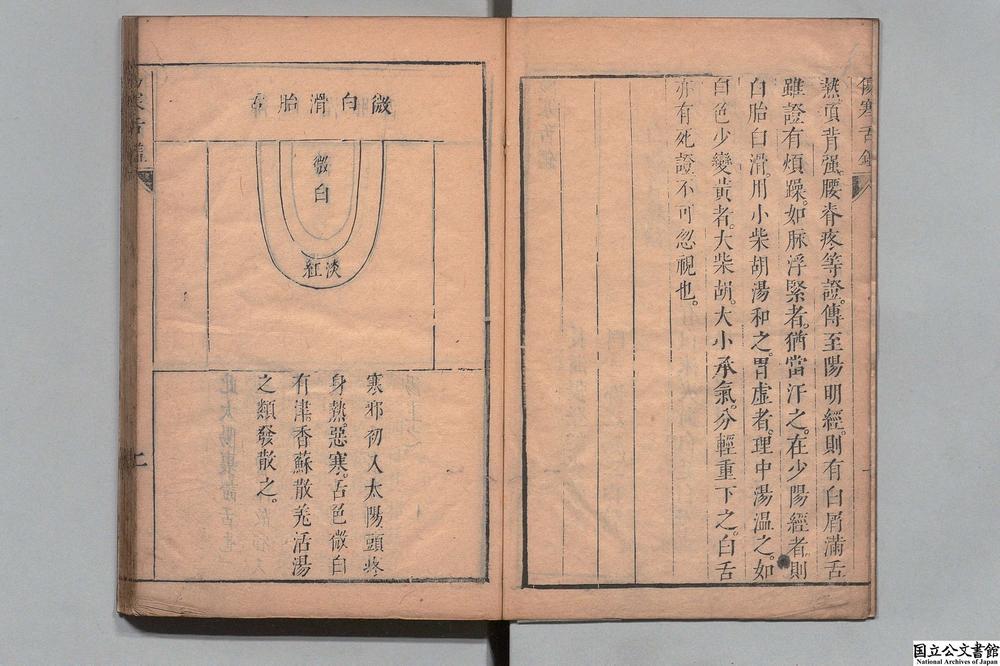 傷寒舌鑑
熱項背强。腰脊疼等證。傳至陽明經。則有白屑滿舌
雖證有煩躁。如脉浮緊者。猶當汗之。在少陽經者。則
白胎白滑。用小柴胡湯和之。胃虛者。理中湯温之。如
白色少變黃者。大柴胡。大小承氣。分輕重下之。白舌
亦有死證。不可忽視也。
微白滑胎舌
微白
淡紅
寒邪初入太陽。頭疼
身熱。惡寒。舌色微白
有津。香蘇散羌活湯
之類發散之。
傷寒舌鑑
二
国立公文書館
National Archives of Japan